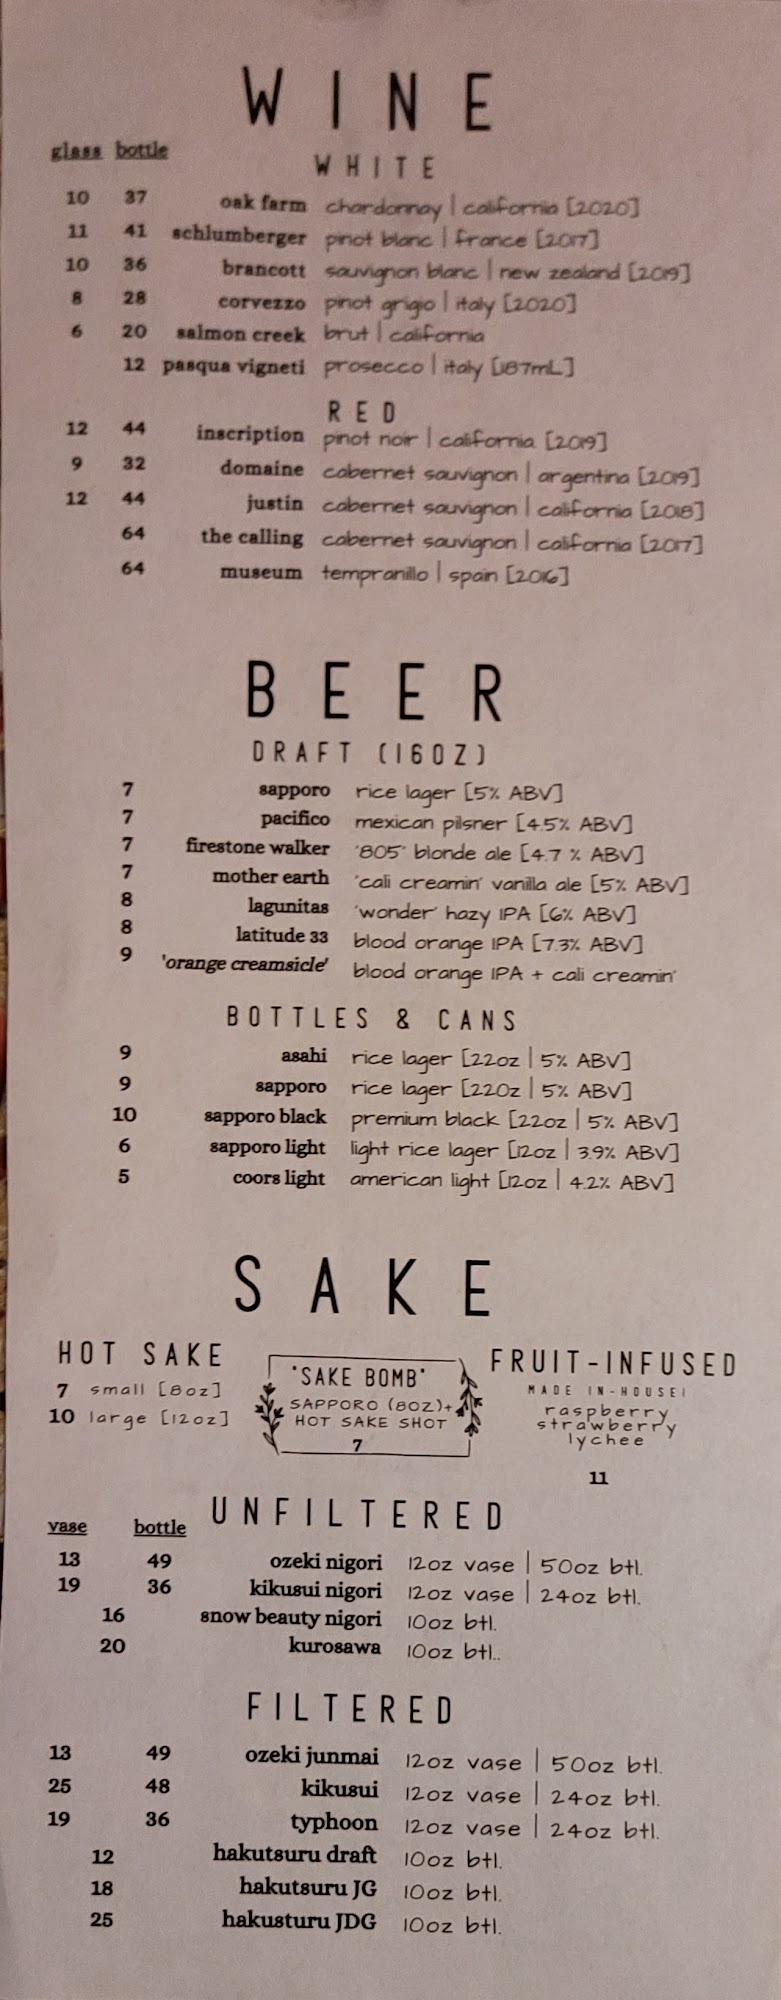 WINE
glass bottle
WHITE
10 37 oak farm chardonnay | california [2020]
11 41 schlumberger pinot blanc | france [2017]
10 36 brancott sauvignon blanc | new zealand [2019]
8 28 corvezzo pinot grigio | italy [2020]
6 20 salmon creek brut | california
12 pasqua vigneti prosecco | italy [187mL]
RED
12 44 inscription pinot noir | california [2019]
9 32 domaine cabernet sauvignon | argentina [2019]
12 44 justin cabernet sauvignon | california [2018]
64 the calling cabernet sauvignon | california [2017]
64 museum tempranillo | spain [2016]
BEER
DRAFT (16OZ)
7 sapporo rice lager [5% ABV]
7 pacifico mexican pilsner [4.5% ABV]
7 firestone walker '805' blonde ale [4.7 % ABV]
7 mother earth 'cali creamin' vanilla ale [5% ABV]
8 lagunitas 'wonder' hazy IPA [6% ABV]
8 latitude 33 blood orange IPA [7.3% ABV]
9 'orange creamsicle' blood orange IPA + cali creamin'
BOTTLES & CANS
9 asahi rice lager [22oz | 5% ABV]
9 sapporo rice lager [22Oz | 5% ABV]
10 sapporo black premium black [22oz | 5% ABV]
6 sapporo light light rice lager [12oz | 3.9% ABV]
5 coors light american light [12oz | 4.2% ABV]
SAKE
HOT SAKE
7 small [8oz]
10 large [12oz]
"SAKE BOMB"
SAPPORO (8OZ)+
HOT SAKE SHOT
7
FRUIT-INFUSED
MADE IN-HOUSE!
raspberry
strawberry
lychee
11
UNFILTERED
vase bottle
13 49 ozeki nigori 12oz vase | 50oz btl.
19 36 kikusui nigori 12oz vase | 24oz btl.
16 snow beauty nigori 10oz btl.
20 kurosawa 10oz btl..
FILTERED
13 49 ozeki junmai 12oz vase | 50oz btl.
25 48 kikusui 12oz vase | 24oz btl.
19 36 typhoon 12oz vase | 24oz btl.
12 hakutsuru draft 10oz btl.
18 hakutsuru JG 10oz btl.
25 hakusturu JDG 10oz btl.